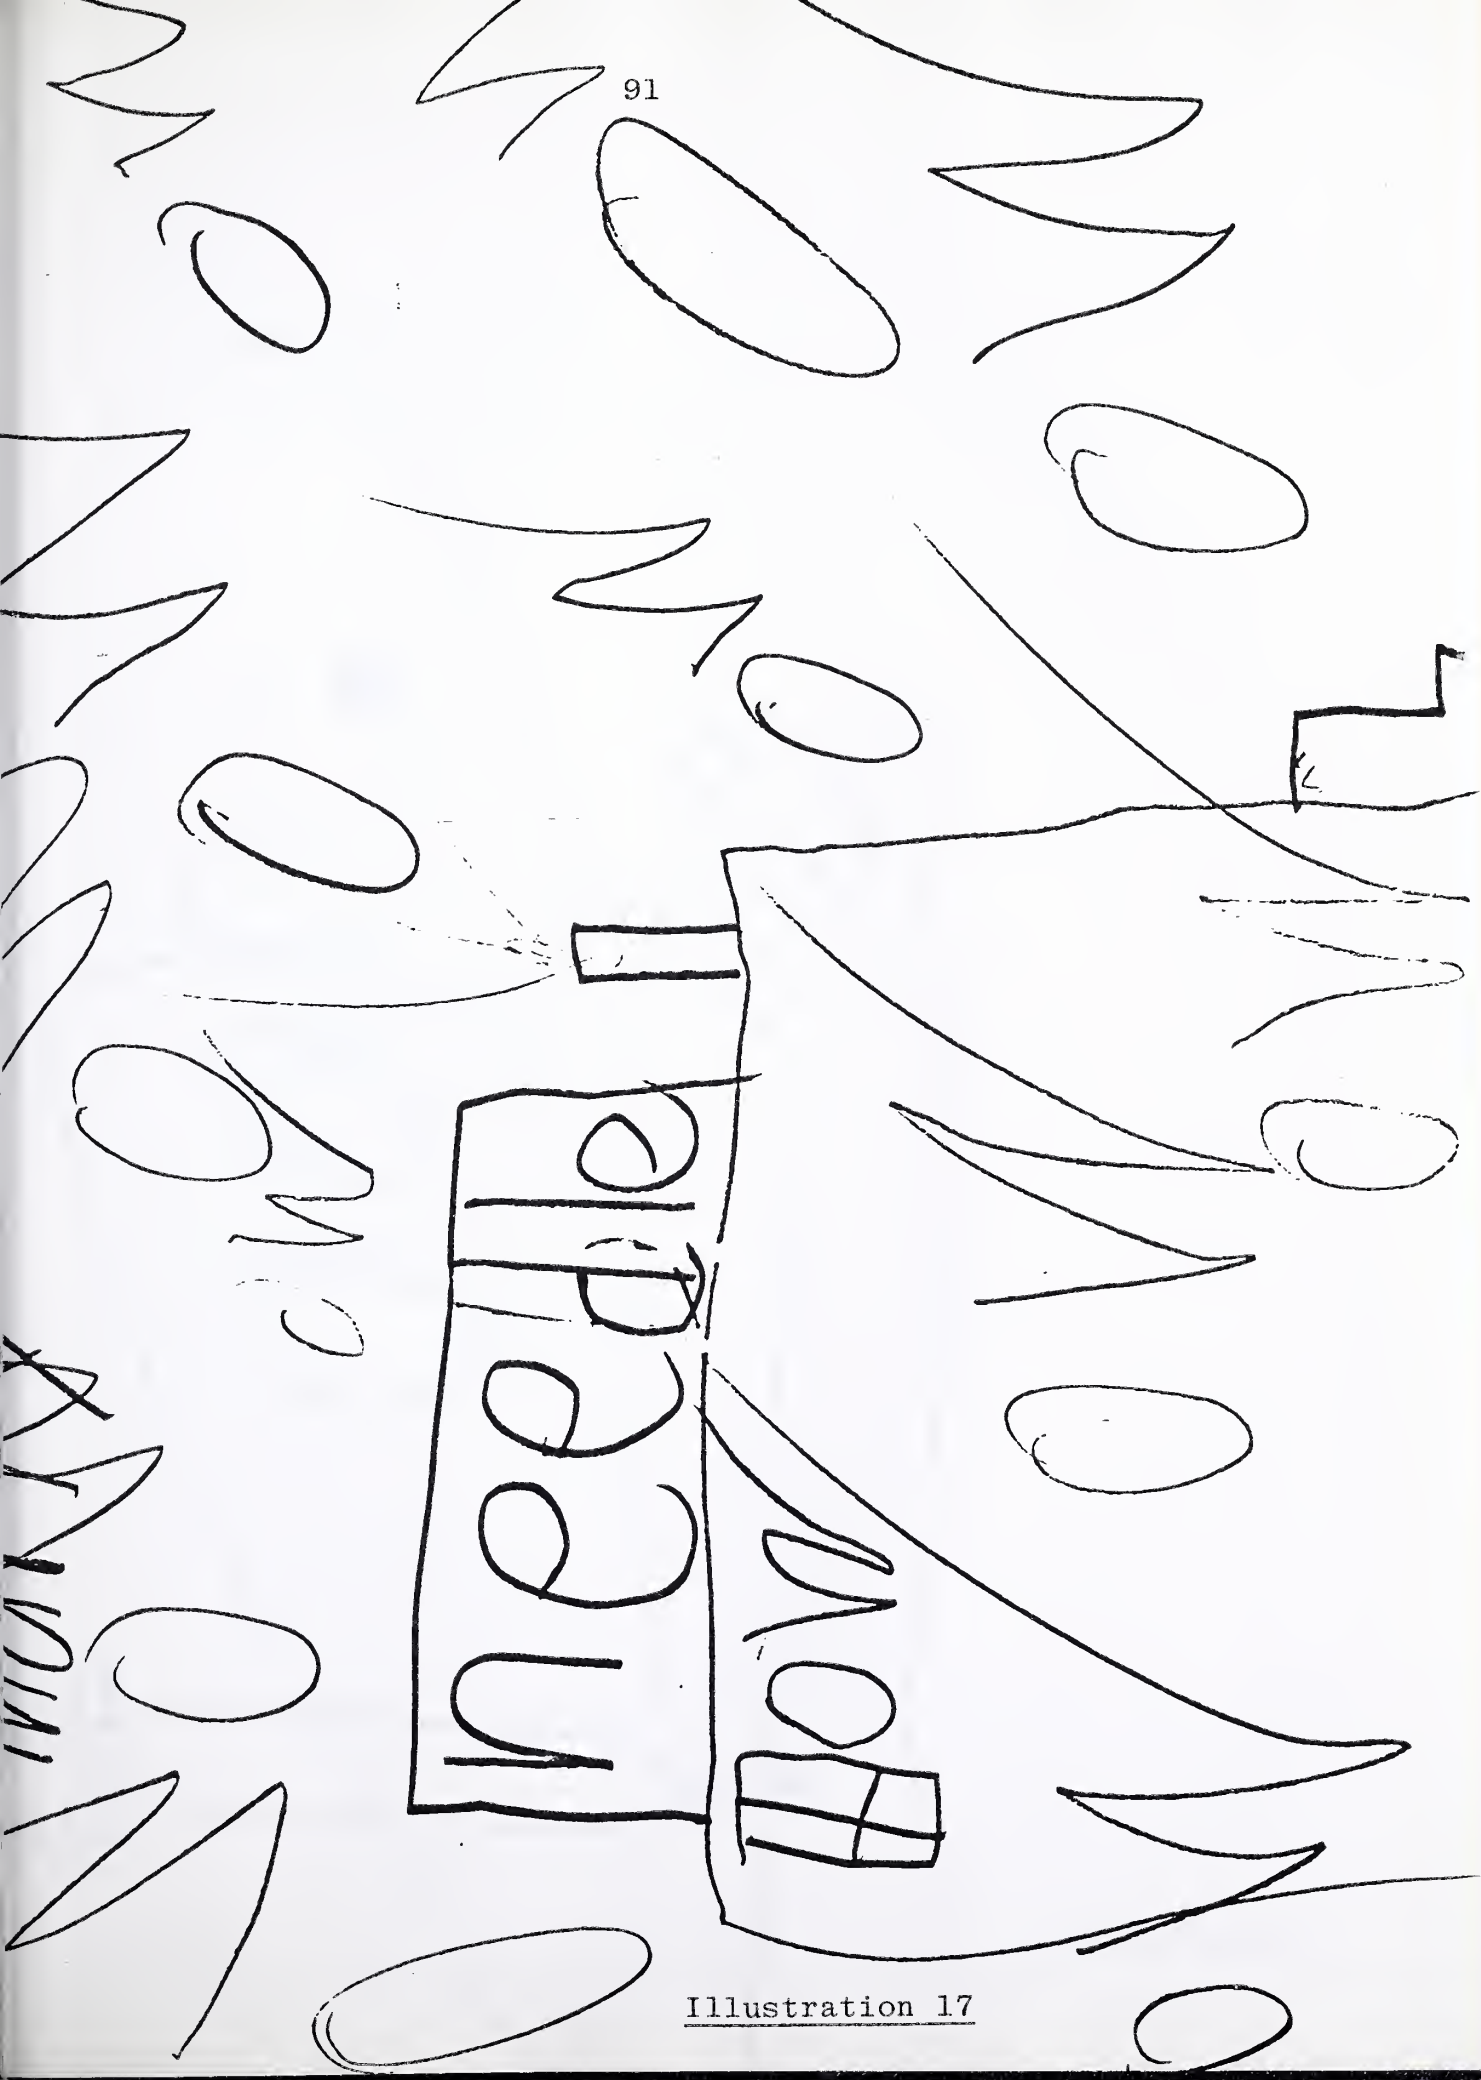 91
needle
Illustration 17